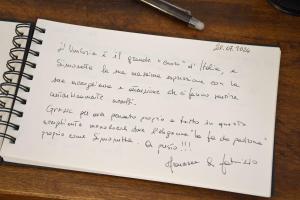 20.07.2024
L'Umbria è il grande "cuore" d'Italia, e
Simonetta la sua massima espressione con la
sua accoglienza e attenzione che ti fanno sentire
immediatamente a
Grazie per aver pensato proprio a tutto in questo
accogliente dove l'eleganza "la fa da padrona"
proprio come Simonetta. A presto!!!
& Fabrizio